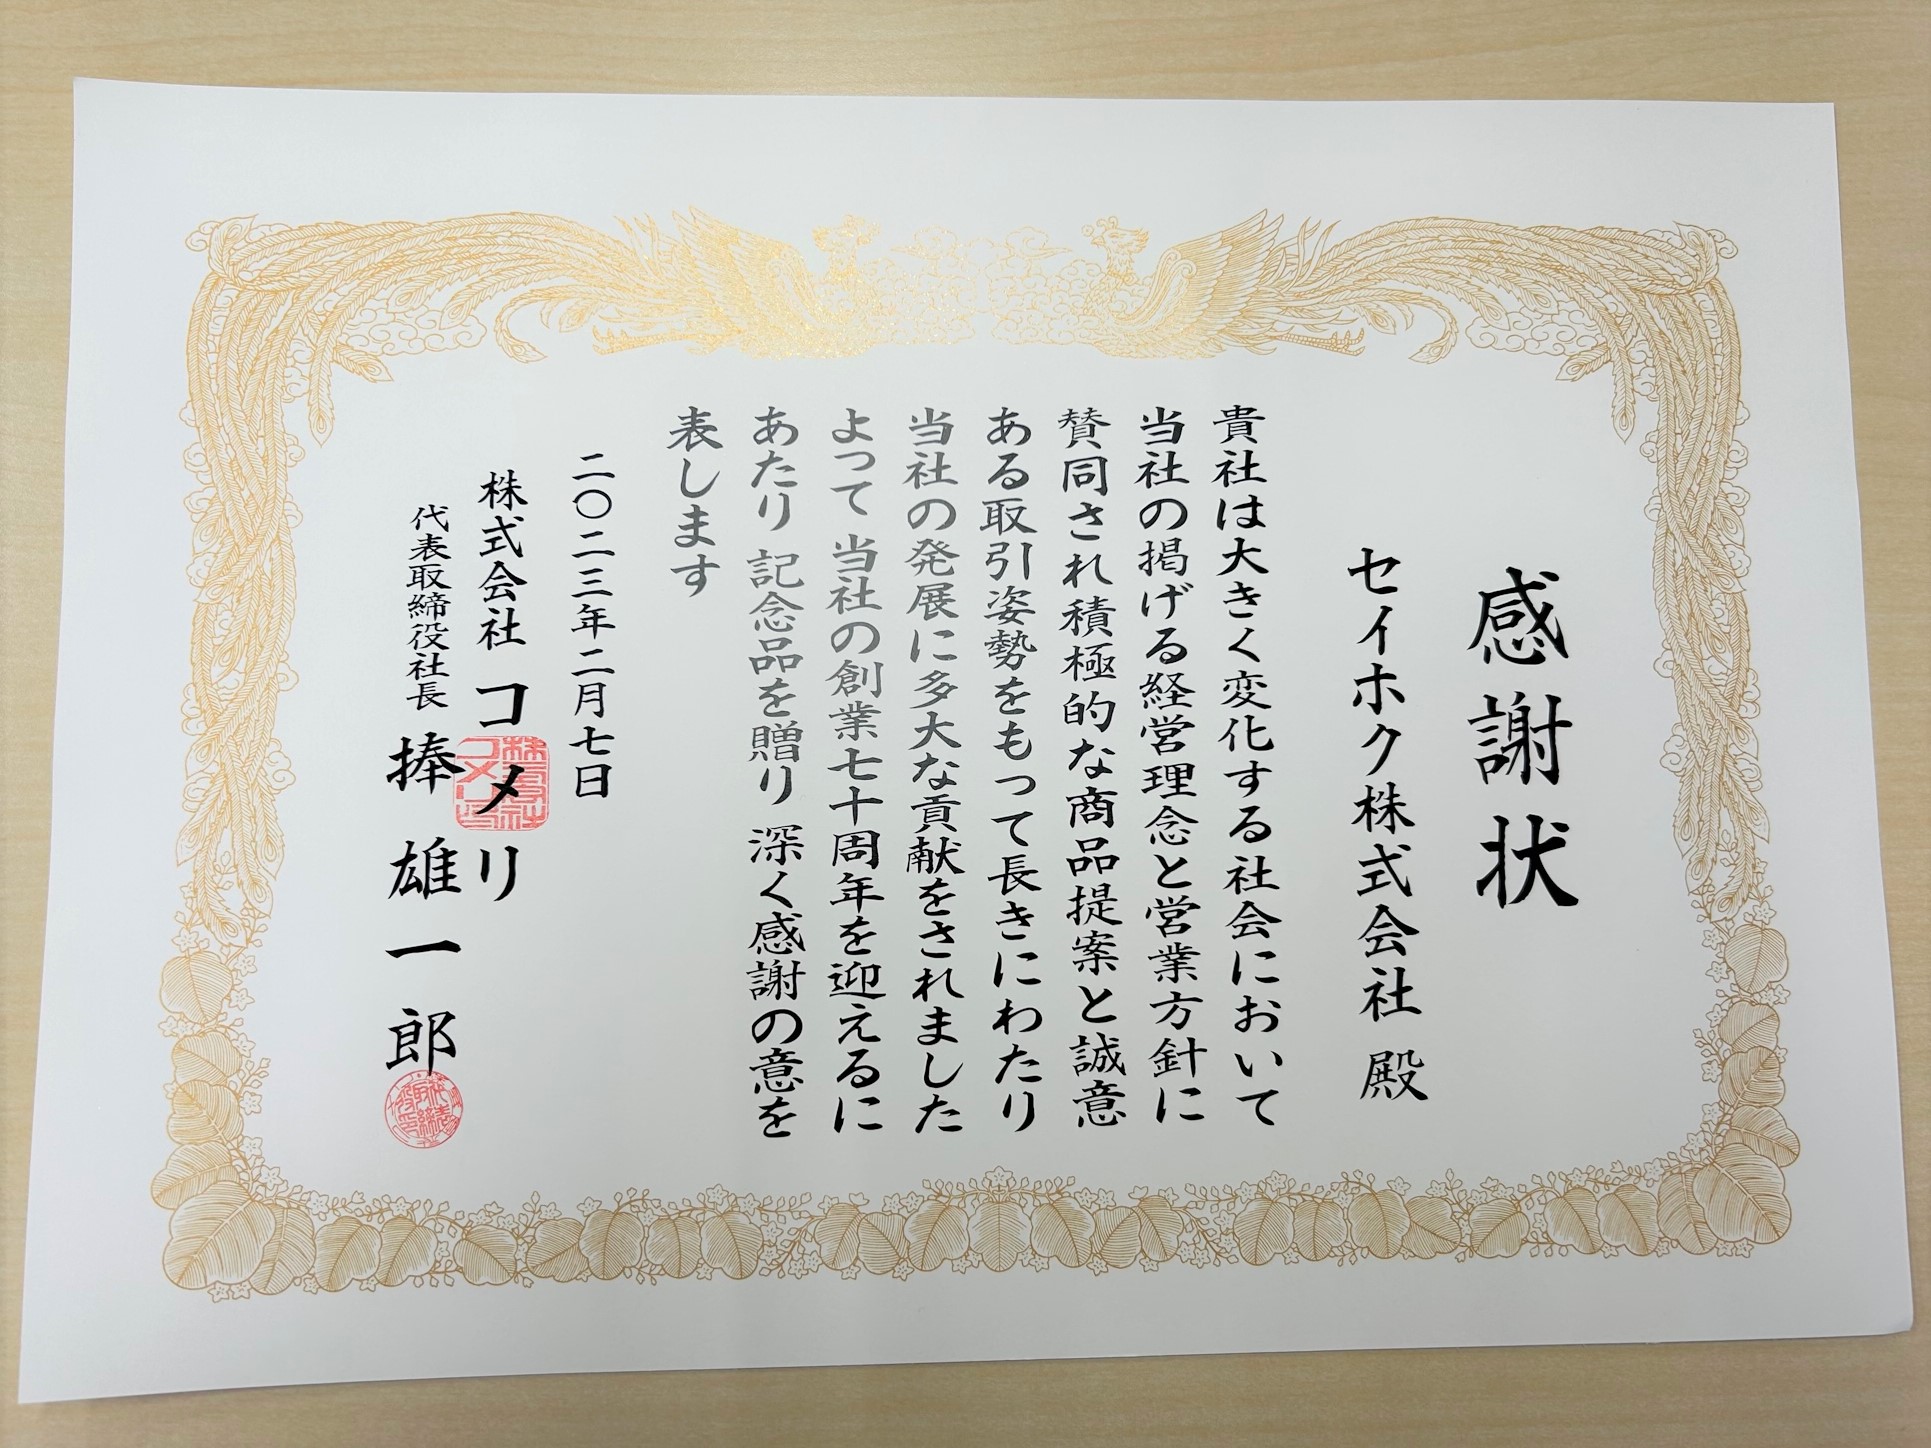 感謝状
セイホク株式会社 殿
貴社は大きく変化する社会において
当社の掲げる経営理念と営業方針に
賛同され積極的な商品提案と誠意
ある取引姿勢をもつて長きにわたり
当社の発展に多大な貢献をされました
よつて 当社の創業七十周年を迎えるに
あたり 記念品を贈り 深く感謝の意を
表します
二〇二三年二月七日
株式会社 コメリ
代表取締役社長 捧 雄一郎